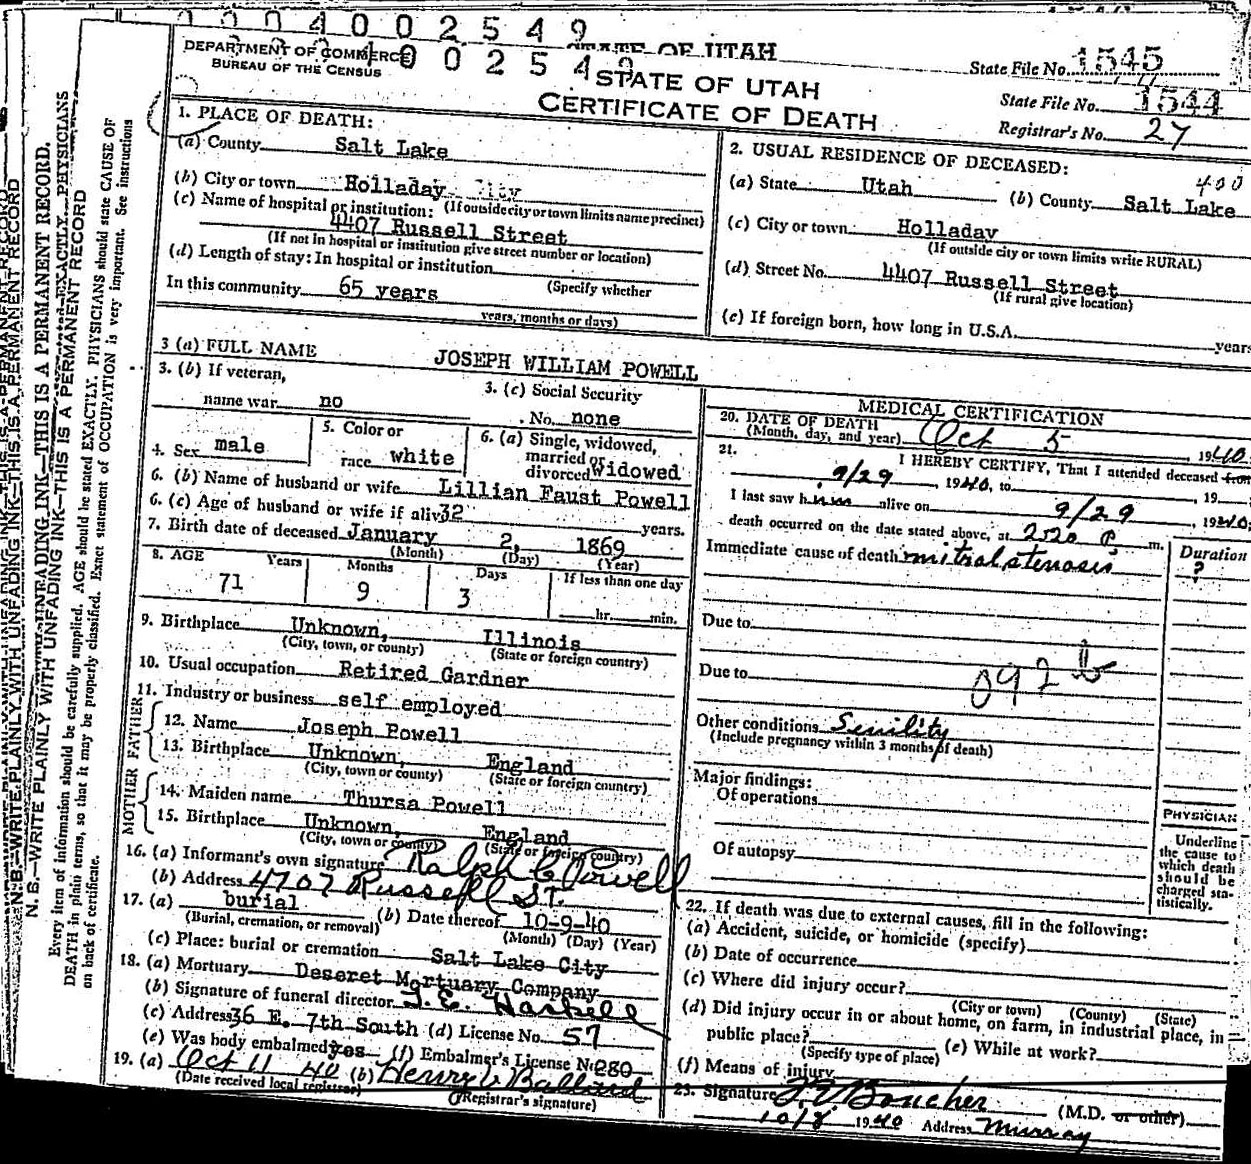 0004002549
DEPARTMENT OF COMMERCE
BUREAU OF THE CENSUS
002549
STATE OF UTAH
STATE OF UTAH
CERTIFICATE OF DEATH
State File No. 1545
State File No. 1544
Registrar's No. 27
1. PLACE OF DEATH:
(a) County Salt Lake
(b) City or town Holladay City
(c) Name of hospital or institution: (If outside city or town limits name precinct)
4407 Russell Street
(If not in hospital or institution give street number or location)
(d) Length of stay: In hospital or institution
In this community 65 years (Specify whether
years, months or days)
2. USUAL RESIDENCE OF DECEASED:
400
(a) State Utah (b) County Salt Lake
(c) City or town Holladay
(If outside city or town limits write RURAL)
(d) Street No. 4407 Russell Street
(If rural give location)
(e) If foreign born, how long in U.S.A. years
3 (a) FULL NAME JOSEPH WILLIAM POWELL
3. (b) If veteran,
name war no
3. (c) Social Security
No. none
4. Sex male
5. Color or
race white
6. (a) Single, widowed,
married or
divorced Widowed
6. (b) Name of husband or wife Lillian Faust Powell
6. (c) Age of husband or wife if alive 32 years.
7. Birth date of deceased January 2, 1869
(Month) (Day) (Year)
8. AGE Years Months Days If less than one day
71 9 3 hr. min.
9. Birthplace Unknown, Illinois
(City, town, or county) (State or foreign country)
10. Usual occupation Retired Gardner
11. Industry or business self employed
FATHER
12. Name Joseph Powell
13. Birthplace Unknown, England
(City, town or county) (State or foreign country)
MOTHER
14. Maiden name Thursa Powell
15. Birthplace Unknown, England
(City, town or county) (State or foreign country)
16. (a) Informant's own signature Ralph C Powell
(b) Address 4707 Russell St.
17. (a) burial (b) Date thereof 10-9-40
(Burial, cremation, or removal) (Month) (Day) (Year)
(c) Place: burial or cremation Salt Lake City
18. (a) Mortuary Deseret Mortuary Company
(b) Signature of funeral director J. E. Haskell
(c) Address 36 E. 7th South (d) License No. 57
(e) Was body embalmed yes (f) Embalmer's License No 280
19. (a) Oct 11 40 (b) Henry C Ballard
(Date received local registrar) (Registrar's signature)
MEDICAL CERTIFICATION
20. DATE OF DEATH
(Month, day, and year) Oct 5 1940
21. I HEREBY CERTIFY, That I attended deceased from
9/29, 1940, to , 19
I last saw him alive on 9/29, 1940;
death occurred on the date stated above, at 2:20 P. m.
Immediate cause of death mitral stenosis
Duration
?
Due to
Due to
092 b
Other conditions Senility
(Include pregnancy within 3 months of death)
Major findings:
Of operations
Of autopsy
PHYSICIAN
Underline
the cause to
which death
should be
charged sta-
tistically.
22. If death was due to external causes, fill in the following:
(a) Accident, suicide, or homicide (specify)
(b) Date of occurrence
(c) Where did injury occur?
(City or town) (County) (State)
(d) Did injury occur in or about home, on farm, in industrial place, in
public place? (e) While at work?
(Specify type of place)
(f) Means of injury
23. Signature Boucher (M.D. or other)
10/8 1940 Address Murray
N. B.—WRITE PLAINLY WITH UNFADING INK—THIS IS A PERMANENT RECORD.
N. B.—WRITE PLAINLY WITH UNFADING INK—THIS IS A PERMANENT RECORD
Every item of information should be carefully supplied. AGE should be stated EXACTLY. PHYSICIANS should state CAUSE OF
DEATH in plain terms, so that it may be properly classified. Exact statement of OCCUPATION is very important. See instructions
on back of certificate.